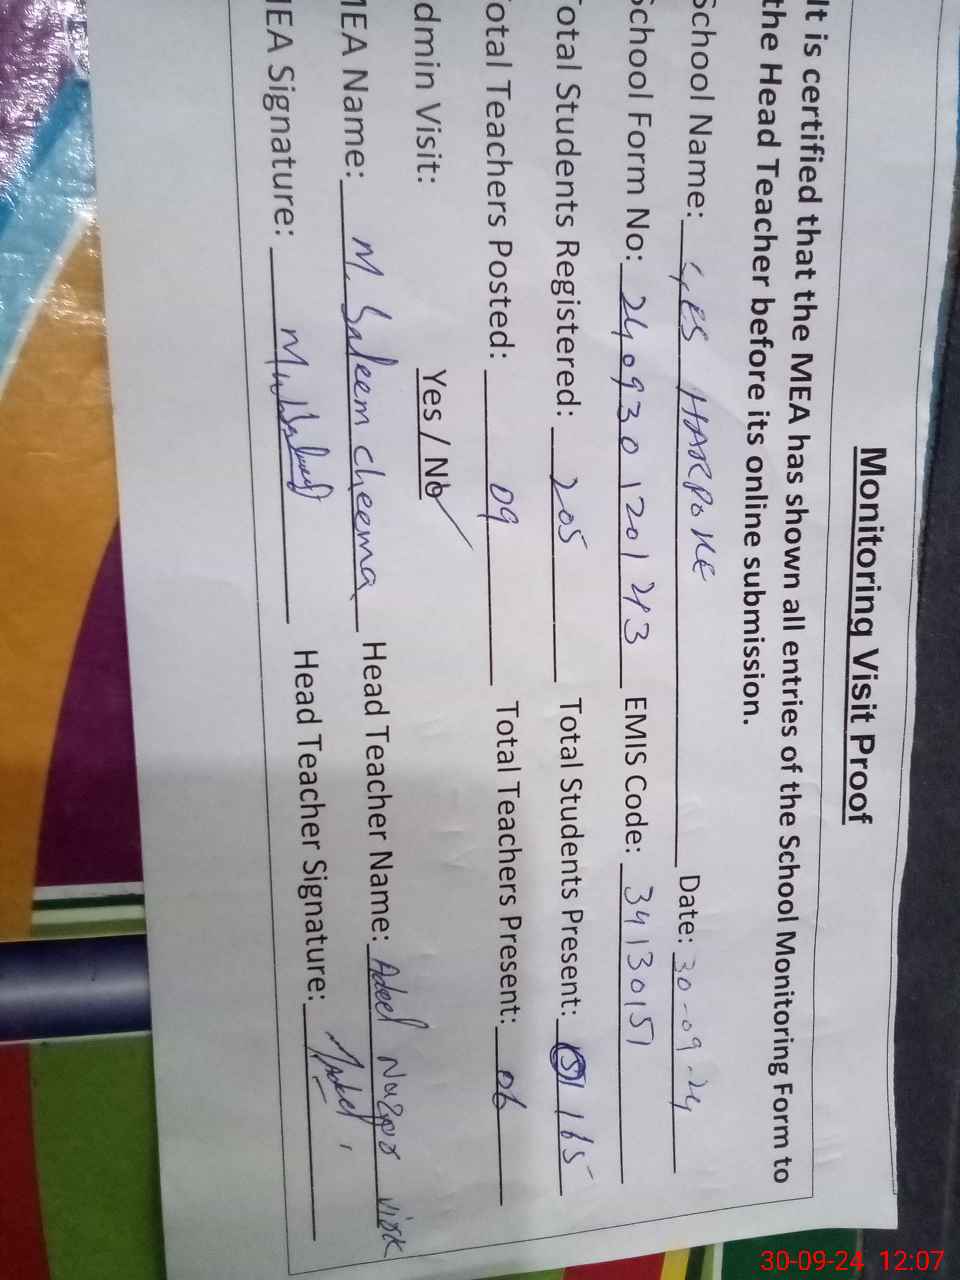 Monitoring Visit Proof
It is certified that the MEA has shown all entries of the School Monitoring Form to
the Head Teacher before its online submission.
School Name: GES HARPOKE Date: 30-09-24
School Form No: 240930120143 EMIS Code: 34130151
Total Students Registered: 205 Total Students Present: 165
Total Teachers Posted: 09 Total Teachers Present: 06
dmin Visit: Yes / No
MEA Name: M. Saleem cheema Head Teacher Name: Adeel Nazir virk
MEA Signature: Head Teacher Signature:
30-09-24 12:07